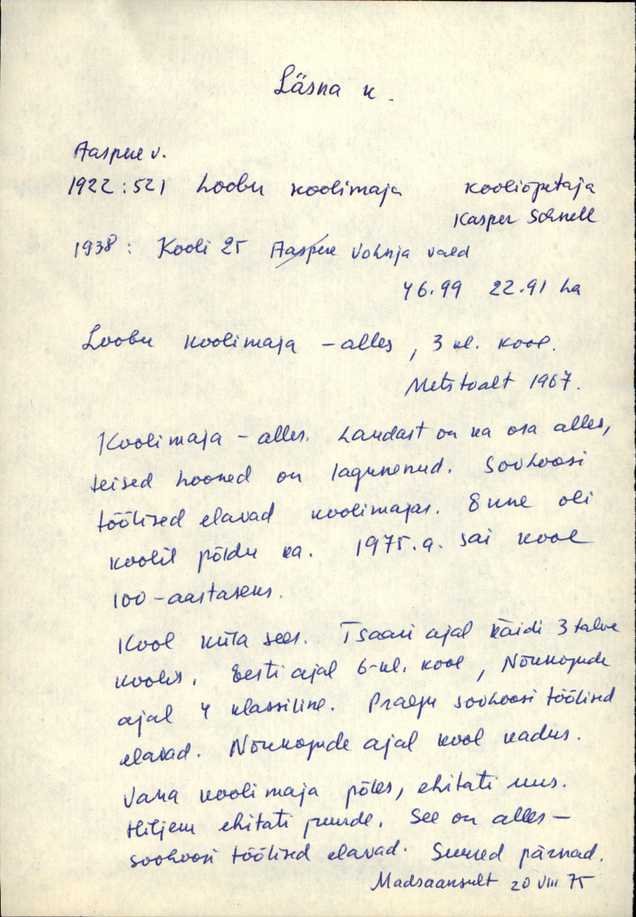 Läsna k.
Aaspere v.
1922:521 Loobu koolimaja kooliõpetaja
Kasper Schnell
1938: Kooli 25 Aaspere Vohnja vald
46.99 22.91 ha
Loobu koolimaja - alles, 3 kl. kool.
Metstoalt 1967.
Koolimaja - alles. Laudast on ka osa alles,
teised hooned on lagunenud. Sovhoosi
töölised elavad koolimajas. Enne oli
koolil põldu ka. 1975.a. sai kool
100-aastaseks.
Kool küla sees. Tsaari ajal käidi 3 talve
koolis. Eesti ajal 6-kl. kool, Nõukogude
ajal 4 klassiline. Praegu sovhoosi töölised
elavad. Nõukogude ajal kool kadus.
Vana koolimaja põles, ehitati uus.
Hiljem ehitati juurde. See on alles -
sovhoosi töölised elavad. Suured pärnad.
Madsaansult 20 VIII 75